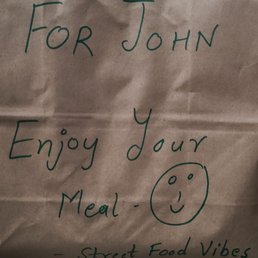 FOR JOHN
Enjoy Your
Meal -
- Street Food Vibes